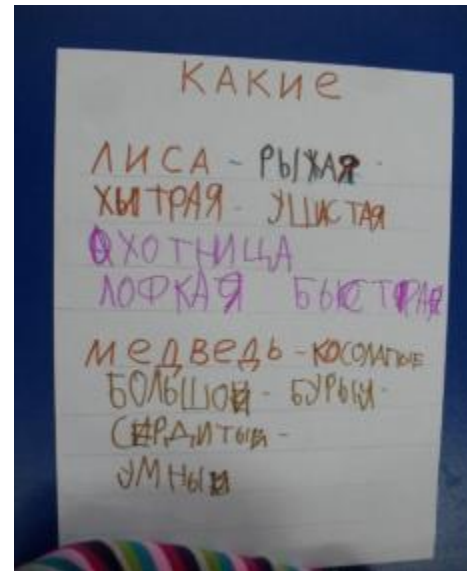 КАКИЕ
ЛИСА - РЫЖАЯ -
ХЫТРАЯ - УШИСТАЯ
ОХОТНИЦА
ЛОФКАЯ БЫСТРАЯ
МЕДВЕДЬ - КОСОЛАПЫЕ
БОЛЬШОЙ - БУРЫЙ -
СЕРДИТЫЙ -
УМНЫЙ